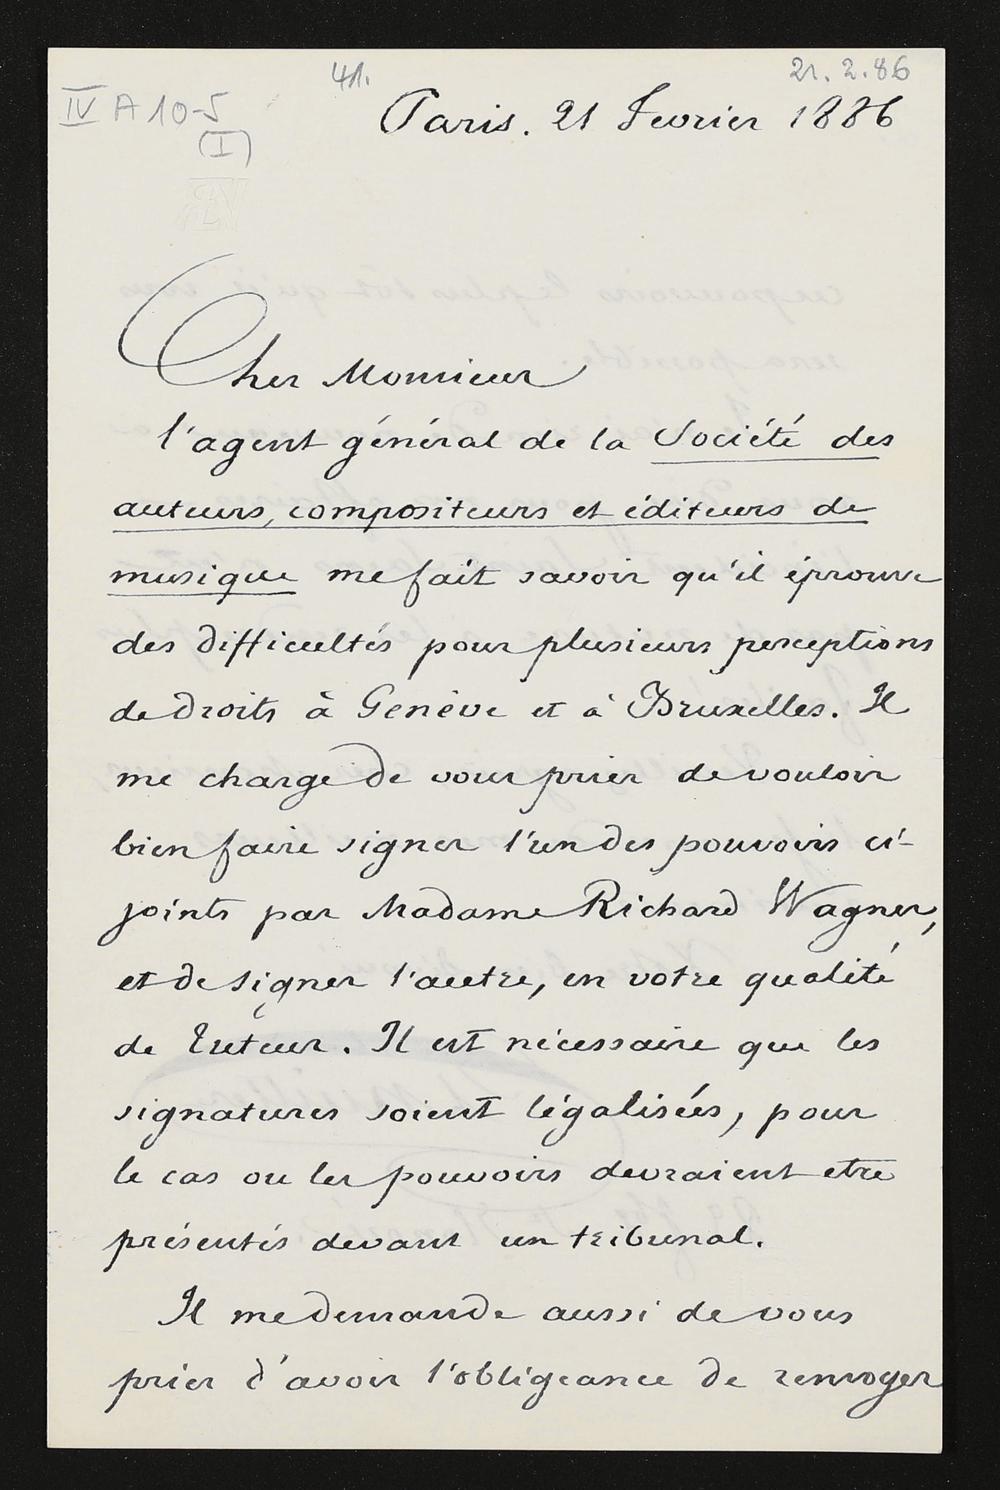 41.
21. 2. 86
IV A 10-5
(I)
Paris. 21 Fevrier 1886
Cher Monsieur
l'agent général de la Société des
auteurs, compositeurs et éditeurs de
musique me fait savoir qu'il éprouve
des difficultés pour plusieurs perceptions
de droits à Genève et à Bruxelles. Il
me charge de vous prier de vouloir
bien faire signer l'un des pouvoirs ci-
joints par Madame Richard Wagner,
et de signer l'autre, en votre qualité
de Tuteur. Il est nécessaire que les
signatures soient légalisées, pour
le cas ou les pouvoirs devraient etre
présentés devant un tribunal.
Il me demande aussi de vous
prier d'avoir l'obligeance de renvoyer